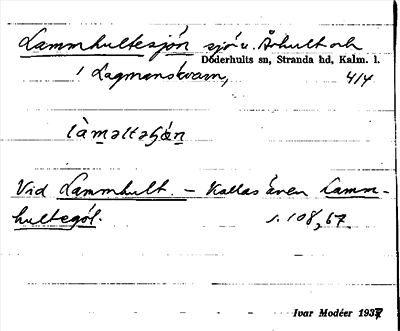 Lammhultesjön sjö u. Århult och
Döderhults sn, Stranda hd, Kalm. l.
i Lagmanskvarn, 4/4
Vid Lammhult. – Kallas även Lamm-
hultegöl. s. 108, 67
Ivar Modéer 1937